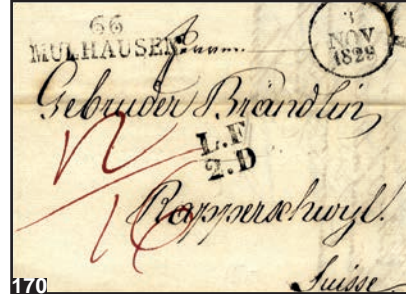 66
MULHAUSEN
3
NOV
1829
Herren
Gebruder Brändlin,
L.F
2.D
Rapperschwyl.
Suisse.
170